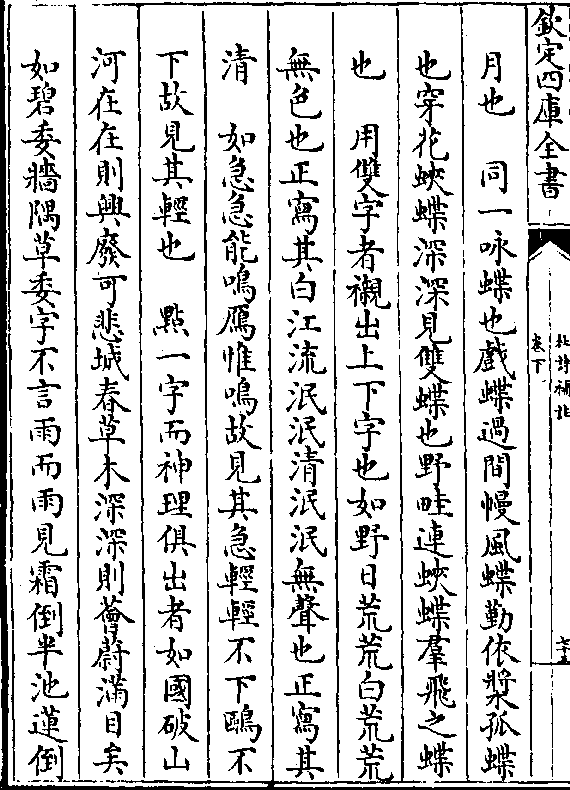 欽定四庫全書
杜詩捃
卷下
七十五
月也　同一咏蝶也戲蝶過間幔風蝶勤依槳孤蝶
也穿花蛺蝶深深見雙蝶也野畦連蛺蝶羣飛之蝶
也　用雙字者襯出上下字也如野日荒荒白荒荒
無色也正寫其白江流泯泯清泯泯無聲也正寫其
清　如急急能鳴鴈惟鳴故見其急輕輕不下鷗不
下故見其輕也　點一字而神理俱出者如國破山
河在在則興廢可悲城春草木深深則薈蔚滿目矣
如碧委牆隅草委字不言雨而雨見霜倒半池蓮倒